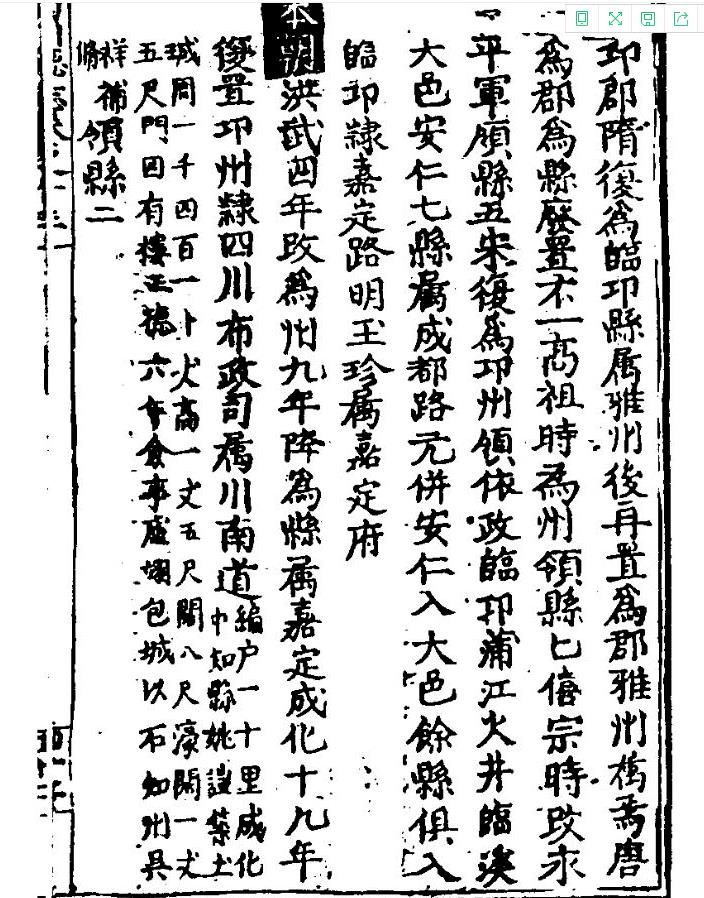 邛郡隋復為臨邛縣属雅州後再置為郡雅州
為郡為縣廢置不一高祖時為州領縣七僖宗時改永
平軍領縣五宋復為邛州領依政臨邛蒲江火井臨溪
大邑安仁七縣屬成都路元併安仁入大邑餘縣俱入
臨邛隷嘉定路明玉珍属嘉定府
本朝洪武四年改為州九年降為縣属嘉定成化十九年
復置邛州隷四川布政司属川南道
編户一十里成化
中知縣姚
築土
城周一千四百一十丈高一丈五尺闊八尺濠闊一丈
五尺門四有樓正德六年
包城以石知州吳
祥補脩
領縣二